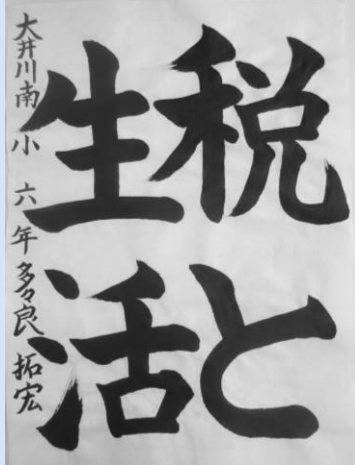 税と
生活
大井川南小 六年 多々良 拓宏